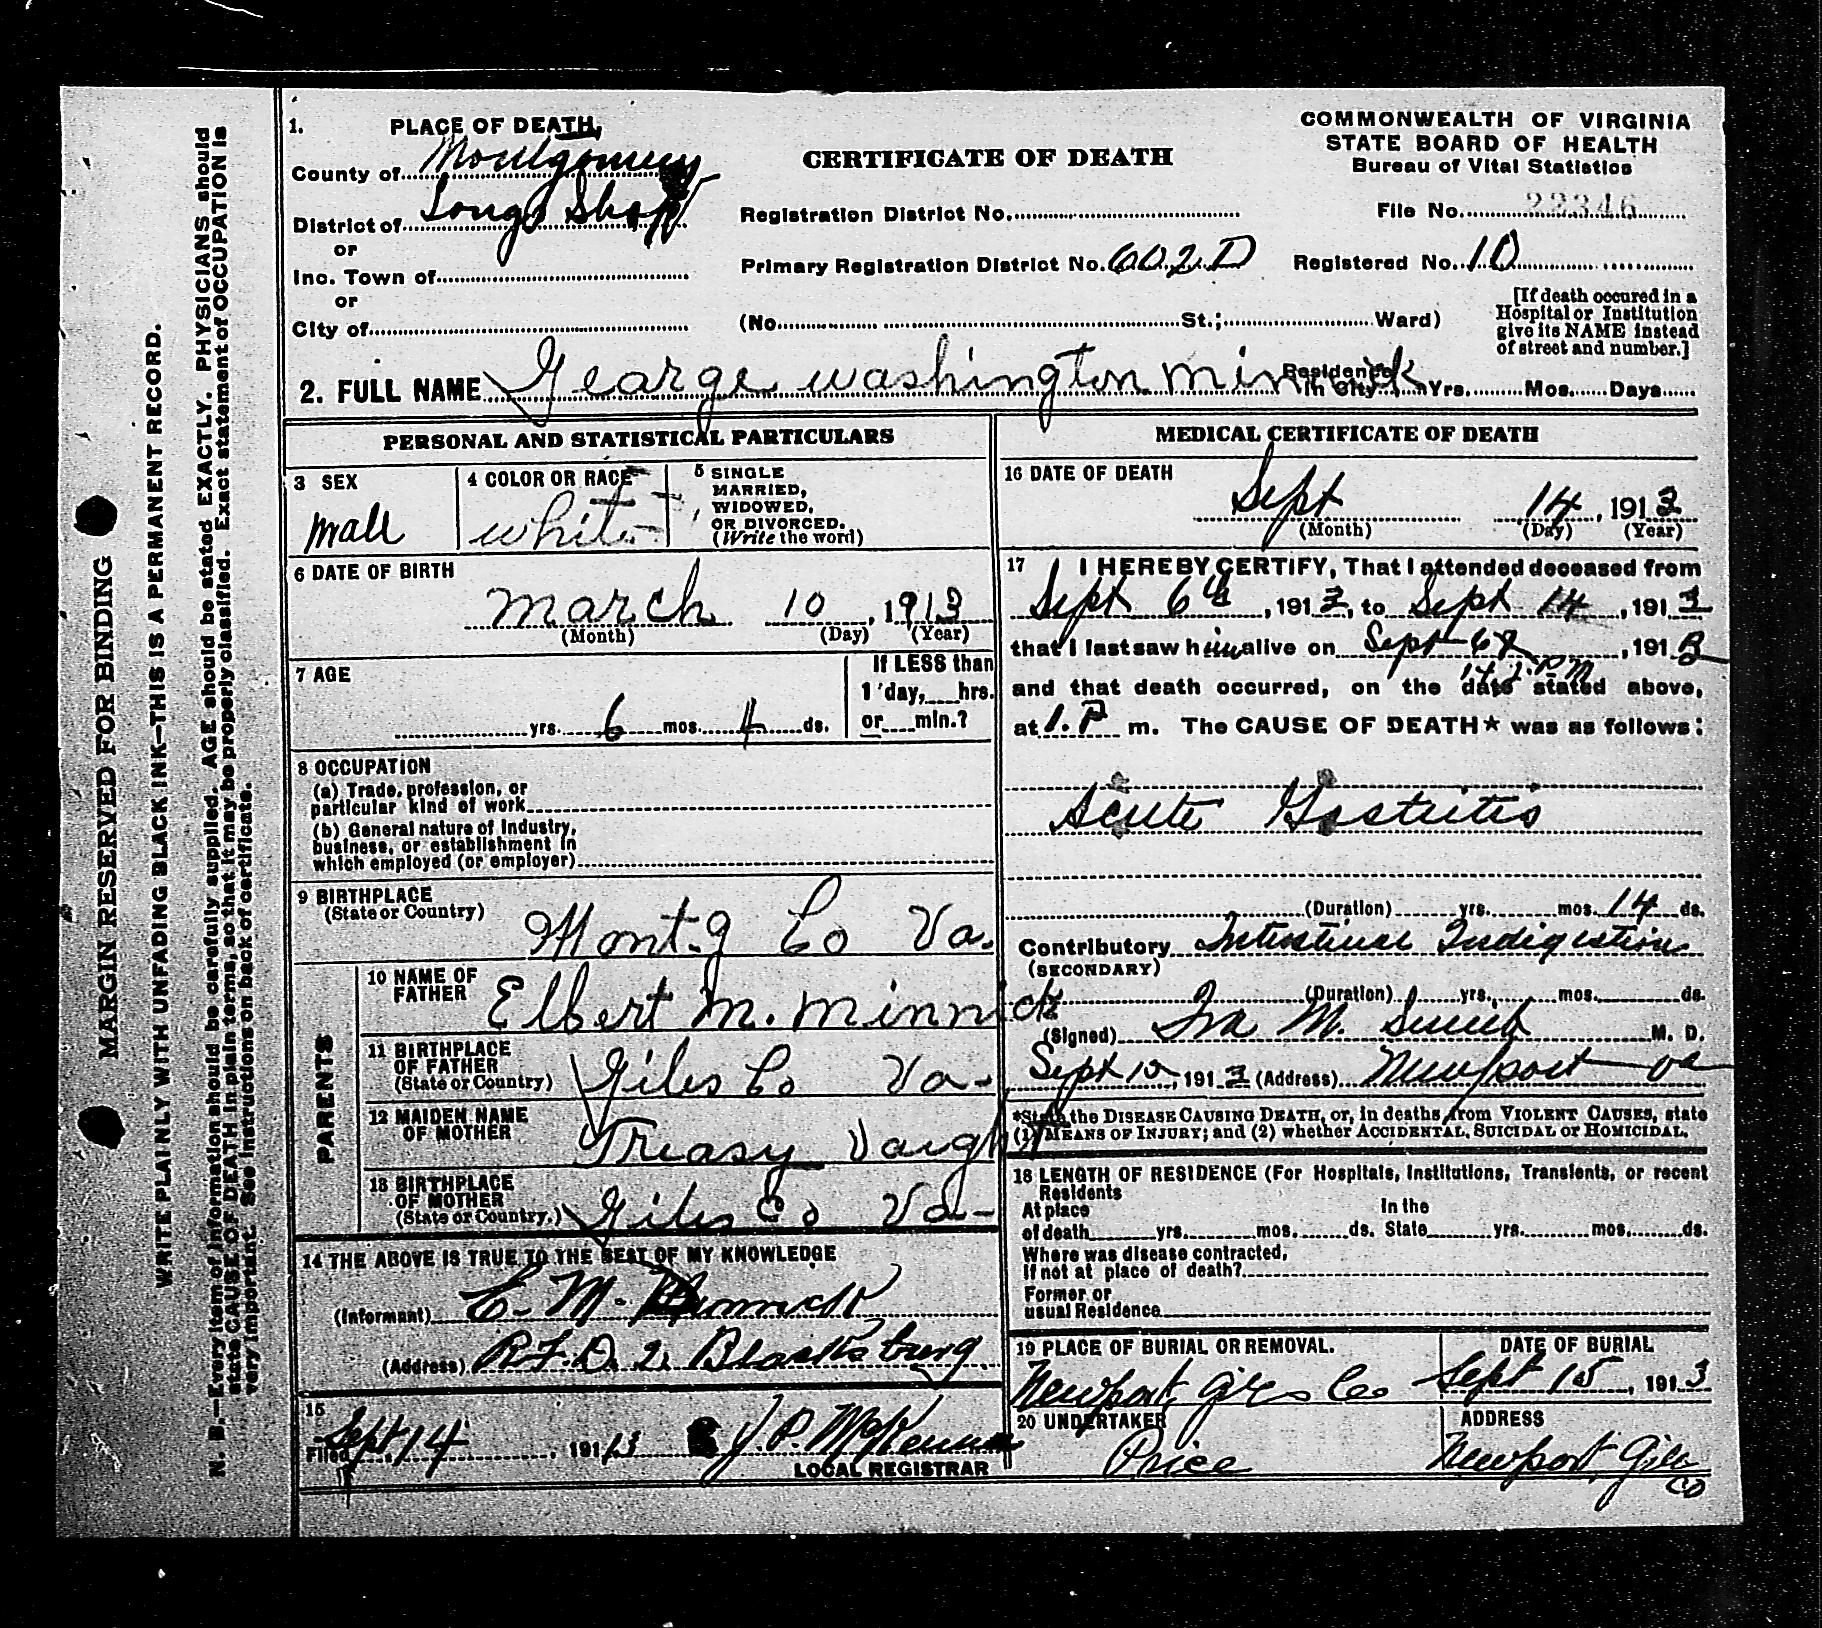 MARGIN RESERVED FOR BINDING
WRITE PLAINLY WITH UNFADING BLACK INK—THIS IS A PERMANENT RECORD.
N. B.—Every item of information should be carefully supplied. AGE should be stated EXACTLY. PHYSICIANS should
state CAUSE OF DEATH in plain terms, so that it may be properly classified. Exact statement of OCCUPATION is
very important. See instructions on back of certificate.
1. PLACE OF DEATH,
County of Montgomery
District of Longs Shop
or
Inc. Town of
or
City of
CERTIFICATE OF DEATH
Registration District No.
Primary Registration District No. 602D
(No. St.; Ward)
COMMONWEALTH OF VIRGINIA
STATE BOARD OF HEALTH
Bureau of Vital Statistics
File No. 22346
Registered No. 10
[If death occured in a
Hospital or Institution
give its NAME instead
of street and number.]
2. FULL NAME George washington minnick Residence In City Yrs. Mos. Days
PERSONAL AND STATISTICAL PARTICULARS
3 SEX
male
4 COLOR OR RACE
white
5 SINGLE
MARRIED,
WIDOWED,
OR DIVORCED.
(Write the word)
6 DATE OF BIRTH
march 10, 1913
(Month) (Day) (Year)
7 AGE
yrs. 6 mos. 4 ds.
If LESS than
1 day, hrs.
or min.?
8 OCCUPATION
(a) Trade, profession, or
particular kind of work
(b) General nature of Industry,
business, or establishment in
which employed (or employer)
9 BIRTHPLACE
(State or Country)
Mont.g Co Va.
PARENTS
10 NAME OF
FATHER
Elbert M. minnick
11 BIRTHPLACE
OF FATHER
(State or Country)
Giles Co Va-
12 MAIDEN NAME
OF MOTHER
Treasy Vaught
13 BIRTHPLACE
OF MOTHER
(State or Country.)
Giles Co Va-
14 THE ABOVE IS TRUE TO THE BEST OF MY KNOWLEDGE
(Informant) E. M. Minnick
(Address) R.F.D. 2. Blacksburg
15
Filed Sept 14, 1913 J. P. McKenna
LOCAL REGISTRAR
MEDICAL CERTIFICATE OF DEATH
16 DATE OF DEATH
Sept 14, 1913
(Month) (Day) (Year)
17 I HEREBY CERTIFY, That I attended deceased from
Sept 6th, 1913, to Sept 14, 1913
that I last saw him alive on Sept 6, 1913
and that death occurred, on the date stated above,
at 1. P m. The CAUSE OF DEATH★ was as follows:
Acute Gastritis
(Duration) yrs. mos. 14 ds.
Contributory Intestinal Indigestion
(SECONDARY)
(Duration) yrs. mos. ds.
(Signed) Ira M. M. D.
Sept 15, 1913 (Address) Newport Va
*State the DISEASE CAUSING DEATH, or, in deaths from VIOLENT CAUSES, state
(1) MEANS OF INJURY; and (2) whether ACCIDENTAL, SUICIDAL or HOMICIDAL.
18 LENGTH OF RESIDENCE (For Hospitals, Institutions, Transients, or recent
Residents
At place In the
of death yrs. mos. ds. State yrs. mos. ds.
Where was disease contracted,
If not at place of death?
Former or
usual Residence
19 PLACE OF BURIAL OR REMOVAL.
Newport, Giles Co
DATE OF BURIAL
Sept 15, 1913
20 UNDERTAKER
Price
ADDRESS
Newport, Giles
Co